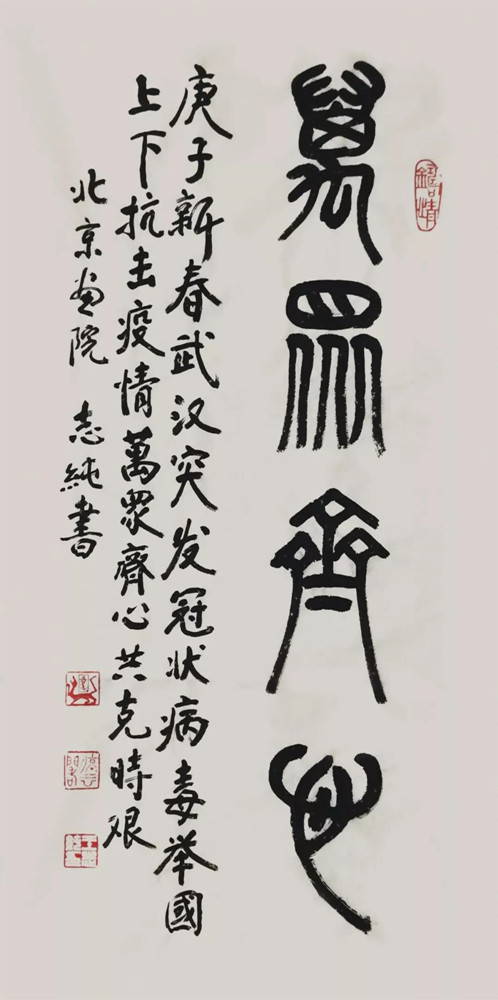 萬眾齊心
庚子新春武汉突发冠状病毒举國
上下抗击疫情萬眾齊心共克時艰
北京画院 志純書